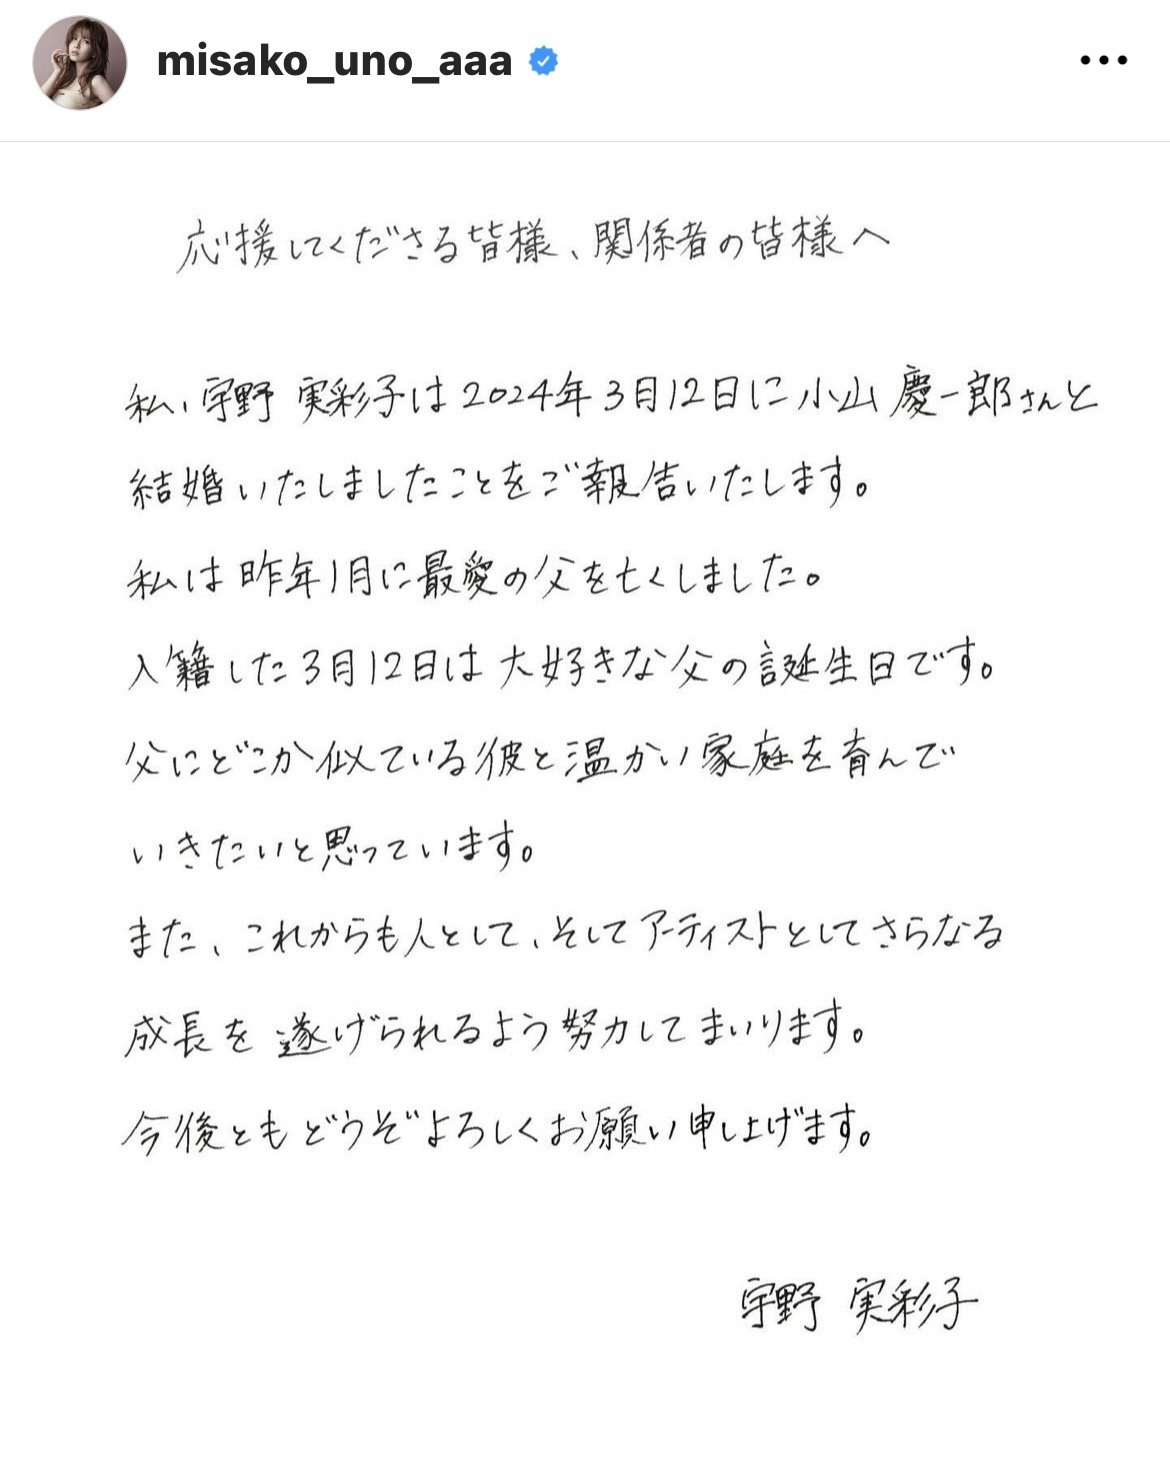 misako_uno_aaa
応援してくださる皆様、関係者の皆様へ
私、宇野 実彩子は2024年3月12日に小山慶一郎さんと
結婚いたしましたことをご報告いたします。
私は昨年1月に最愛の父を亡くしました。
入籍した3月12日は大好きな父の誕生日です。
父にどこか似ている彼と温かい家庭を育んで
いきたいと思っています。
また、これからも人として、そしてアーティストとしてさらなる
成長を遂げられるよう努力してまいります。
今後ともどうぞよろしくお願い申し上げます。
宇野 実彩子